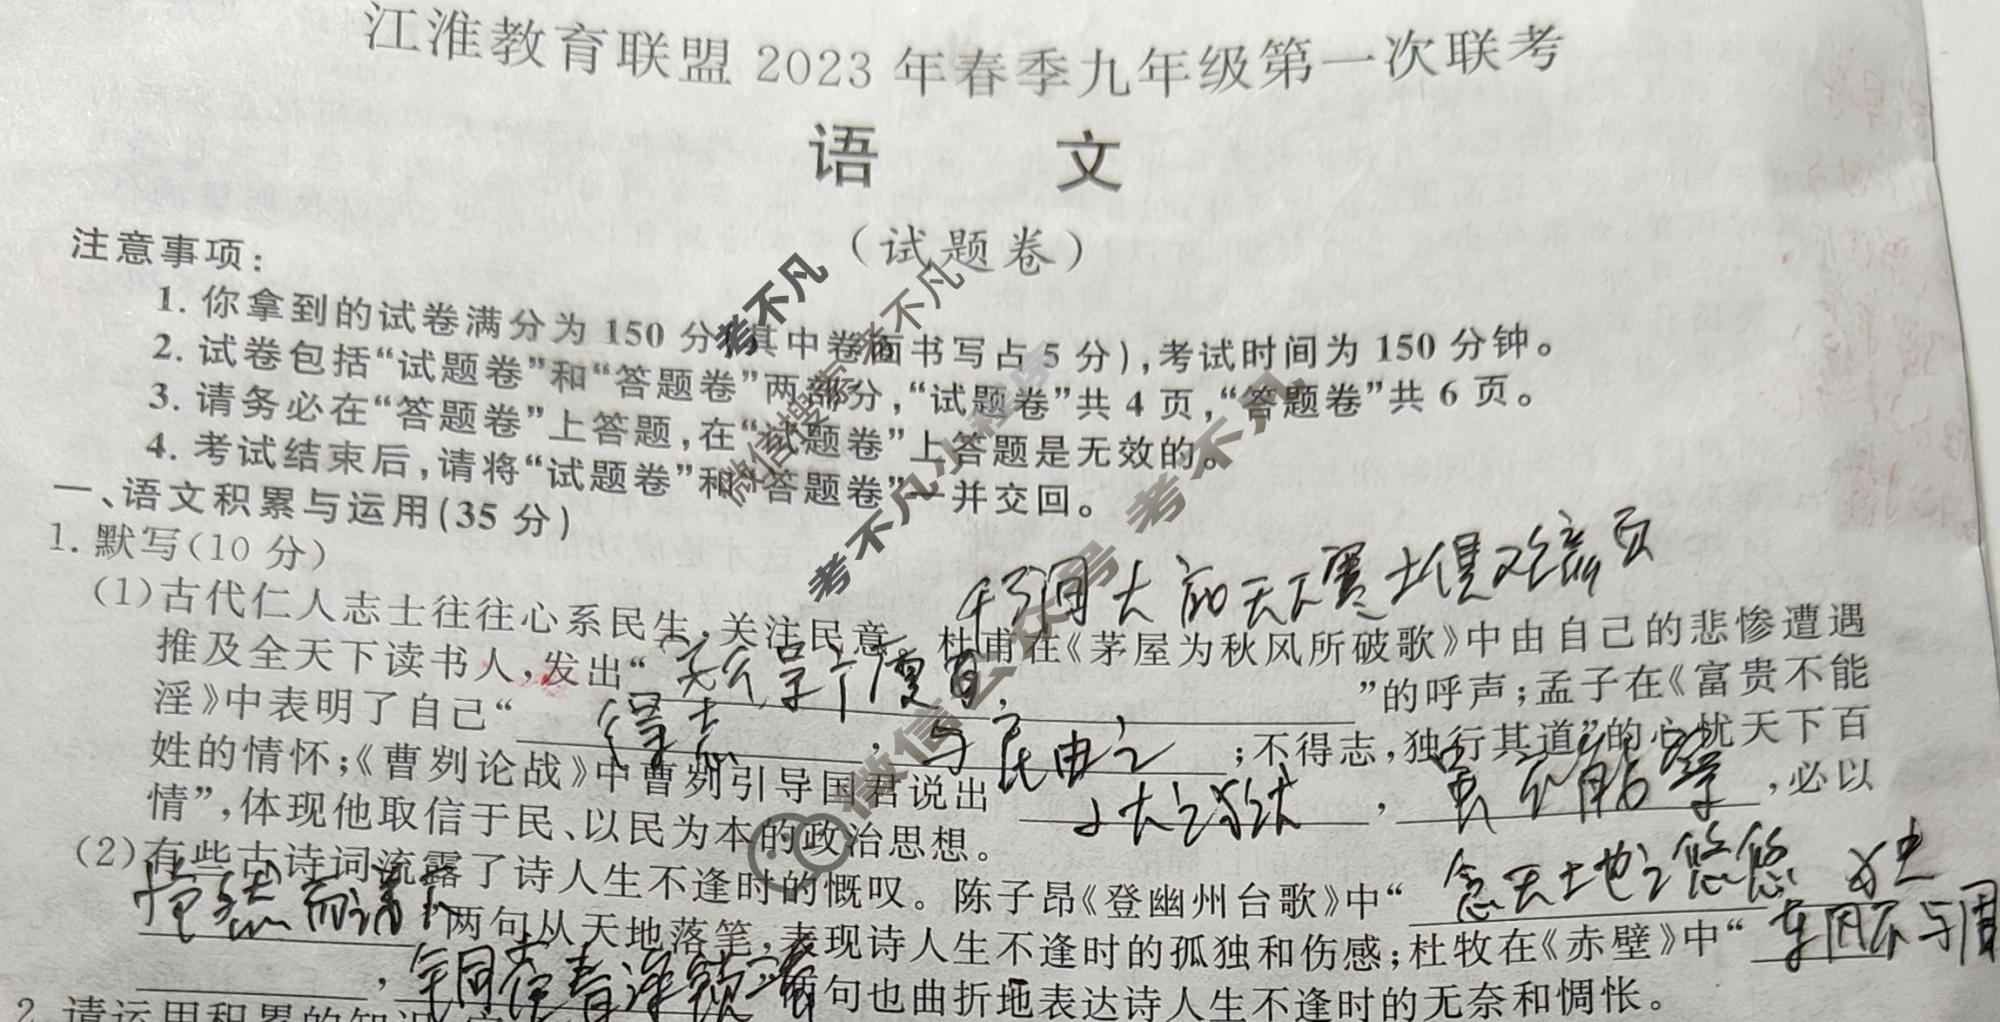 江淮教育联盟 2023 年春季九年级第一次联考
语 文
（试题卷）
注意事项：
1. 你拿到的试卷满分为 150 分(其中卷面书写占 5 分),考试时间为 150 分钟。
2. 试卷包括“试题卷”和“答题卷”两部分,“试题卷”共 4 页,“答题卷”共 6 页。
3. 请务必在“答题卷”上答题,在“试题卷”上答题是无效的。
4. 考试结束后,请将“试题卷”和“答题卷”一并交回。
一、语文积累与运用(35 分)
1. 默写(10 分)
(1)古代仁人志士往往心系民生,关注民意。杜甫在《茅屋为秋风所破歌》中由自己的悲惨遭遇
推及全天下读书人,发出“ ”的呼声;孟子在《富贵不能
淫》中表明了自己“ 得志 , 与民由之 ;不得志,独行其道”的心忧天下百
姓的情怀;《曹刿论战》中曹刿引导国君说出 小大之狱 , 虽不能察 ,必以
情”,体现他取信于民、以民为本的政治思想。
(2)有些古诗词流露了诗人生不逢时的慨叹。陈子昂《登幽州台歌》中“ 念天地之悠悠 独
怆然而涕下 两句从天地落笔,表现诗人生不逢时的孤独和伤感;杜牧在《赤壁》中“ 东风不与周
, 春深锁二 两句也曲折地表达诗人生不逢时的无奈和惆怅。
2. 请运用积累的知识
考不凡
考不凡
微信搜索
考不凡小程序
微信公众号 考不凡